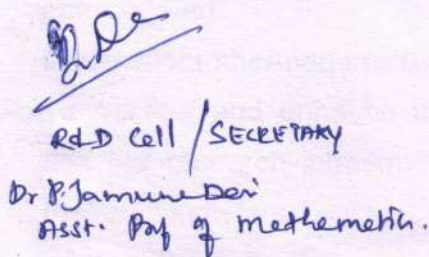 R&D Cell / SECRETARY
Dr P. Jamuna Devi
Asst. Prof of Mathematics.